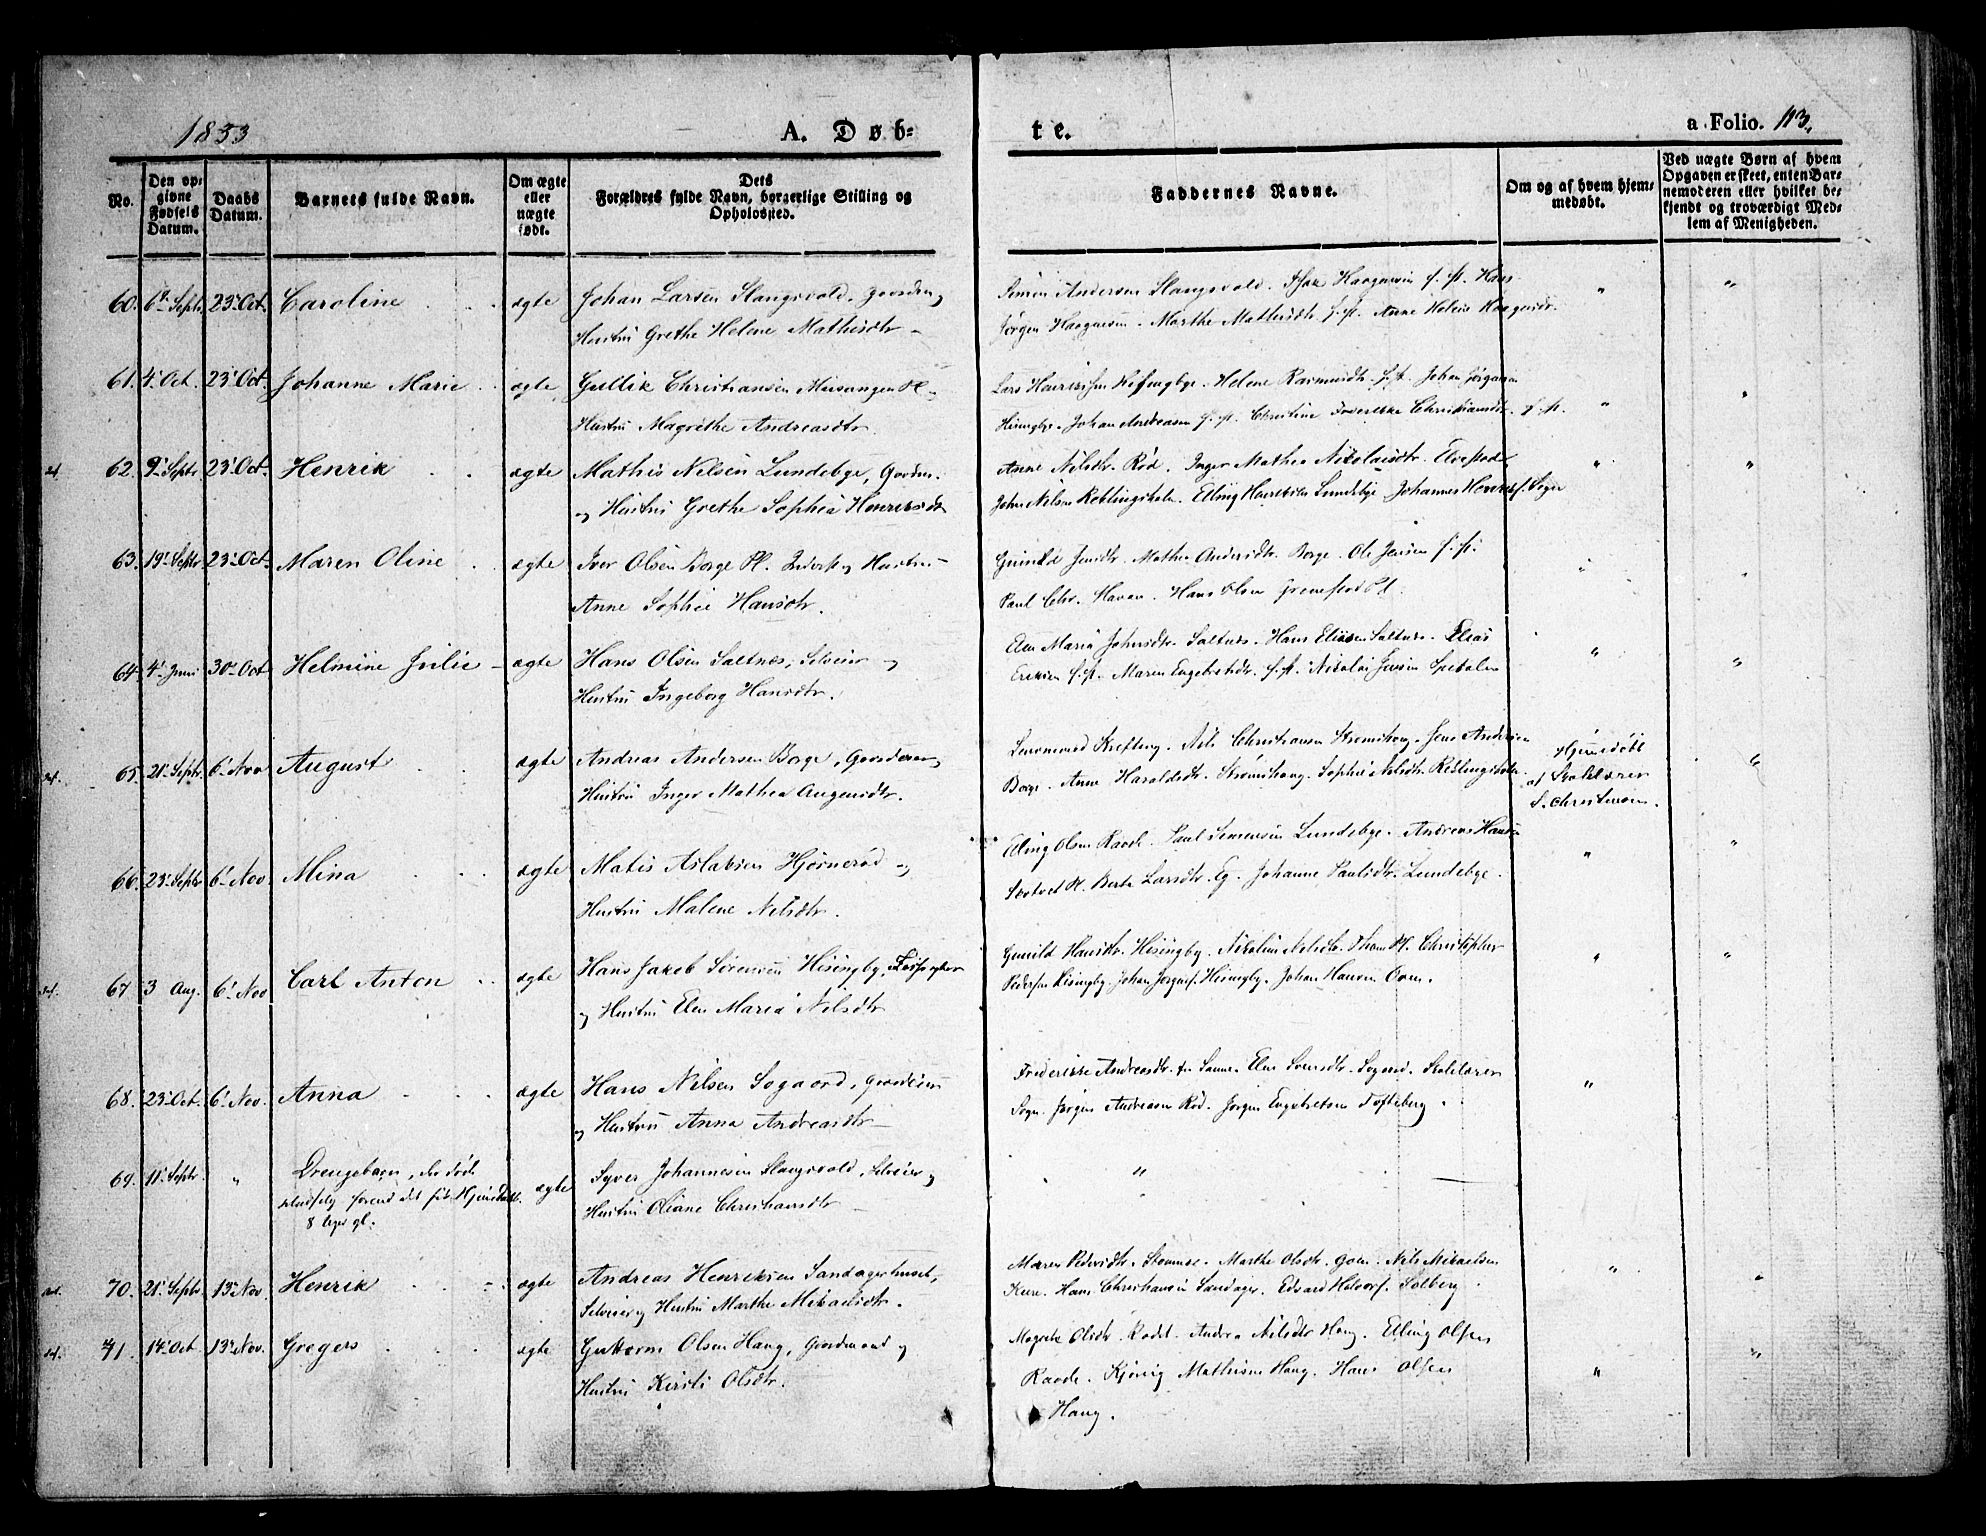 1833
A. Døb-
te.
a Folio. 113.
No.
Den op-
givne
Fødsels
Datum.
Daabs
Datum.
Barnets fulde Navn.
Om ægte
eller
uægte
født.
Dets
Forældres fulde Navn, borgerlige Stilling og
Opholdssted.
Faddernes Navne.
Om og af hvem hjem-
medøbt.
Ved uægte Børn af hvem
Opgaven er skeet, enten Bar-
nemoderen eller hvilket be-
kjendt og troværdigt Med-
lem af Menigheden.
60. 6 Septr 23 Oct. Caroline ægte Johan Larsen Slangsvold, Gaardm. og
Hustru Grethe Helene Mathisdtr
Simen Andersen Slangsvold. Haagensen s. st. Hans
Jørgen Haagensen. Marthe Mathisdtr s. st. Anne Helene Haagensdtr.
61. 4 Oct. 23 Oct. Johanne Marie ægte Gullik Christiansen Pl. og
Hustru Magrethe Andreasdtr.
Lars Henriksen Helene Rasmusdtr s. st. Johan Jørgensen
Hisingbye. Johan Andreasen s. st. Christine Christiansdtr. s. st.
62. 9 Septr 23 Oct. Henrik ægte Mathis Nilsen Lundebye, Gaardm.
og Hustru Grethe Sophia Henriksdtr
Anne Nilsdtr. Rød. Inger Mathea Nikolaisdtr.
John Nilsen Elling Henriksen Lundebye. Johannes
63. 19 Septr 23 Oct. Maren Oline ægte Iver Olsen Borge Pl. og Hustru
Anne Sophie Hansdtr.
Gunild Jensdtr. Mathea Andersdtr. Borge. Ole Jensen s. st.
Paul Chr. Haven. Hans Olsen Pl.
64. 4 Juni 30 Oct Helmine Julie ægte Hans Olsen Saltnes, Selveier og
Hustru Ingeborg Hansdtr.
Elen Maria Johnsdtr. Saltnes. Hans Eliasen Saltnes. Elias
Eriksen s. st. Maren Engebretsdtr. s. st. Nikolai Jensen
65. 21 Septr. 6 Nov August ægte Andreas Andersen Borge, Gaardeier og
Hustru Inger Mathea Augensdtr.
Krefting. Nils Christiansen Strømshaug. Jens Andersen
Borge. Anne Haraldsdtr. Strømshaug. Sophie Nilsdtr.
Hjemdøbt
af Skolelærer
S. Christensen.
66. 23 Septr 6 Nov. Mina ægte Matis Aslaksen Hjørnerød og
Hustru Malene Nilsdtr.
Elling Olsen Raade. Paul Simensen Lundebye. Andreas Hansen
Pl. Berte Larsdtr. Eg. Johanne Paulsdtr. Lundebye.
67 3 Aug. 6 Nov Carl Anton ægte Hans Jakob Sørensen Hisingby,
og Hustru Elen Maria Nilsdtr
Gunild Hansdtr. Hisingby. Nikoline Nilsdtr. Christopher
Pedersen Hisingby. Johan Jørgens. Hisingby. Johan Hansen
68. 23 Oct. 6 Nov. Anna ægte Hans Nilsen Sogaard, Gaardeier
og Hustru Anna Andreasdtr
Friderikke Andreasdtr. Elen Svendsdtr. Skolelærer
Sogn. Jørgen Andreasen Rød. Jørgen Engebretsen Tofteberg.
69. 11 Septr. " Drengebarn, der døde
forend det fik Hjemdaab.
8 Uger gl. ægte Syver Johannesen Slangsvold, Selveier og
Hustru Oliane Christiansdtr
70. 21 Septr 13 Nov. Henrik ægte Andreas Henriksen Sandagerhuset,
Selveier og Hustru Marthe Mikaelsdtr.
Maren Pedersdtr. Marthe Olsdtr. Nils Mikaelsen
Kure. Hans Christiansen Sandager. Edvard Solberg.
71. 14 Oct 13 Nov. Gregers ægte Guttorm Olsen Haug, Gaardmand og
Hustru Kirsti Olsdtr.
Magrete Olsdtr. Andrea Nilsdtr Haug. Elling Olsen
Raade. Mathisen Haug. Hans Olsen
Haug.